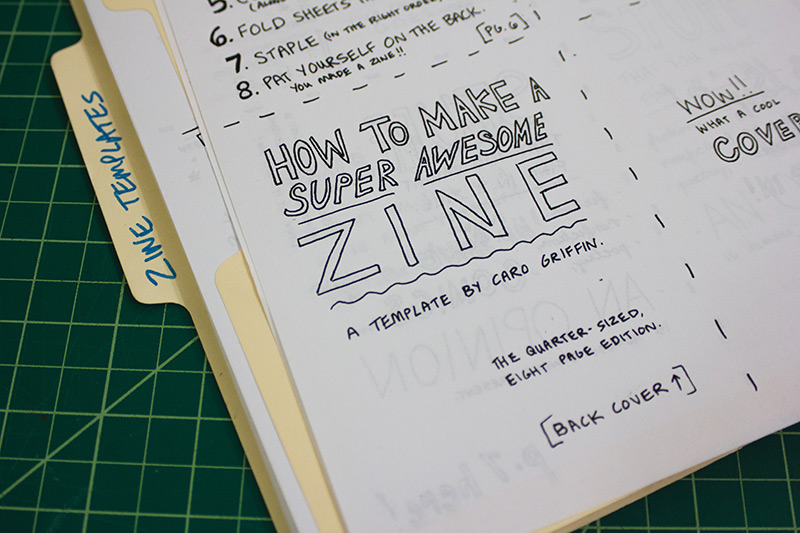 5.
6. FOLD SHEETS
7. STAPLE (IN THE RIGHT ORDER,
8. PAT YOURSELF ON THE BACK.
YOU MADE A ZINE!!
[PG. 6]
ZINE TEMPLATES
HOW TO MAKE A
SUPER AWESOME
ZINE
A TEMPLATE BY CARO GRIFFIN.
THE QUARTER-SIZED,
EIGHT PAGE EDITION.
[BACK COVER↑]
WOW!!
WHAT A COOL
COVER